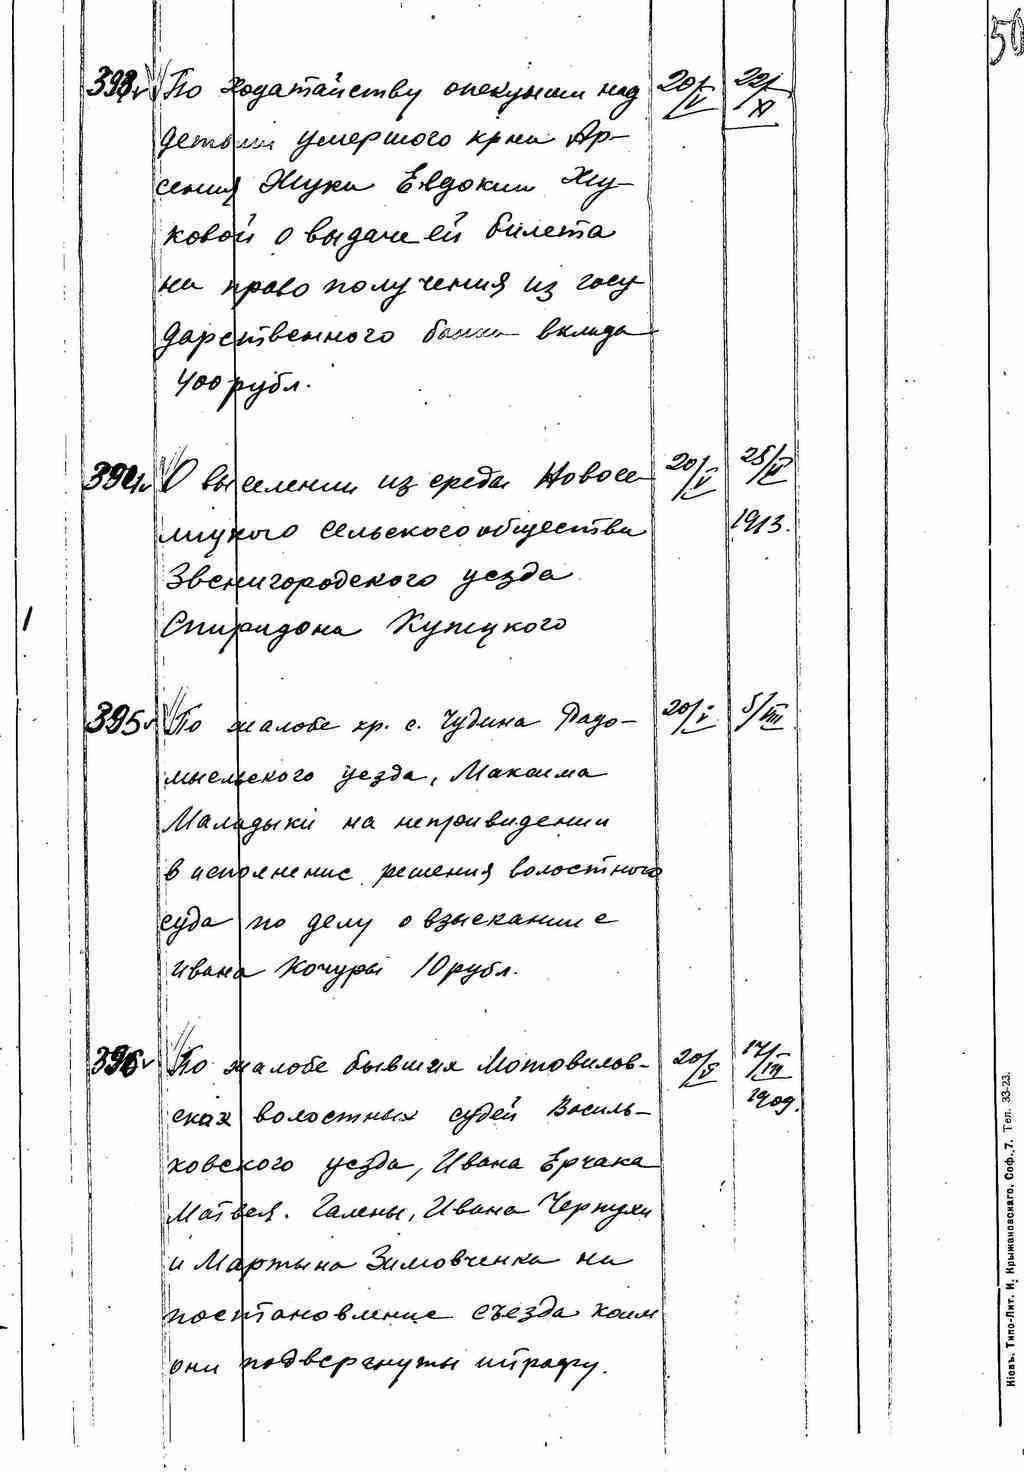 50
393 По ходатайству опекунши над 20/V 22/XI
детьми умершого крна Ар-
сения Жука Евдокии Жу-
ковой о выдаче ей билета
на право получения из госу
дарственного банка вклада
400 рубл.
394 О выселении из среды Новосе- 20/V 25/II
лицкого сельского общества 1913.
Звенигородского уезда
Спиридона Купецкого
395 По жалобе кр. с. Чудина Радо- 20/V 5/VIII
мысльского уезда, Максима
Маладыки на неприведении
в исполнение решения волостного
суда по делу о взыскании с
Ивана Кочуры 10 рубл.
396 По жалобе бывших Мотовилов- 20/V 17/III
ских волостных судей Василь- 1909.
ковского уезда, Ивана Ерчака
Матвея. Галены, Ивана Черпухи
и Мартына Зимовченка на
постановление съезда коим
они подвергнуты штрафу.
Кіевъ. Типо-Лит. И. Крыжановскаго. Соф., 7. Тел. 33-23.